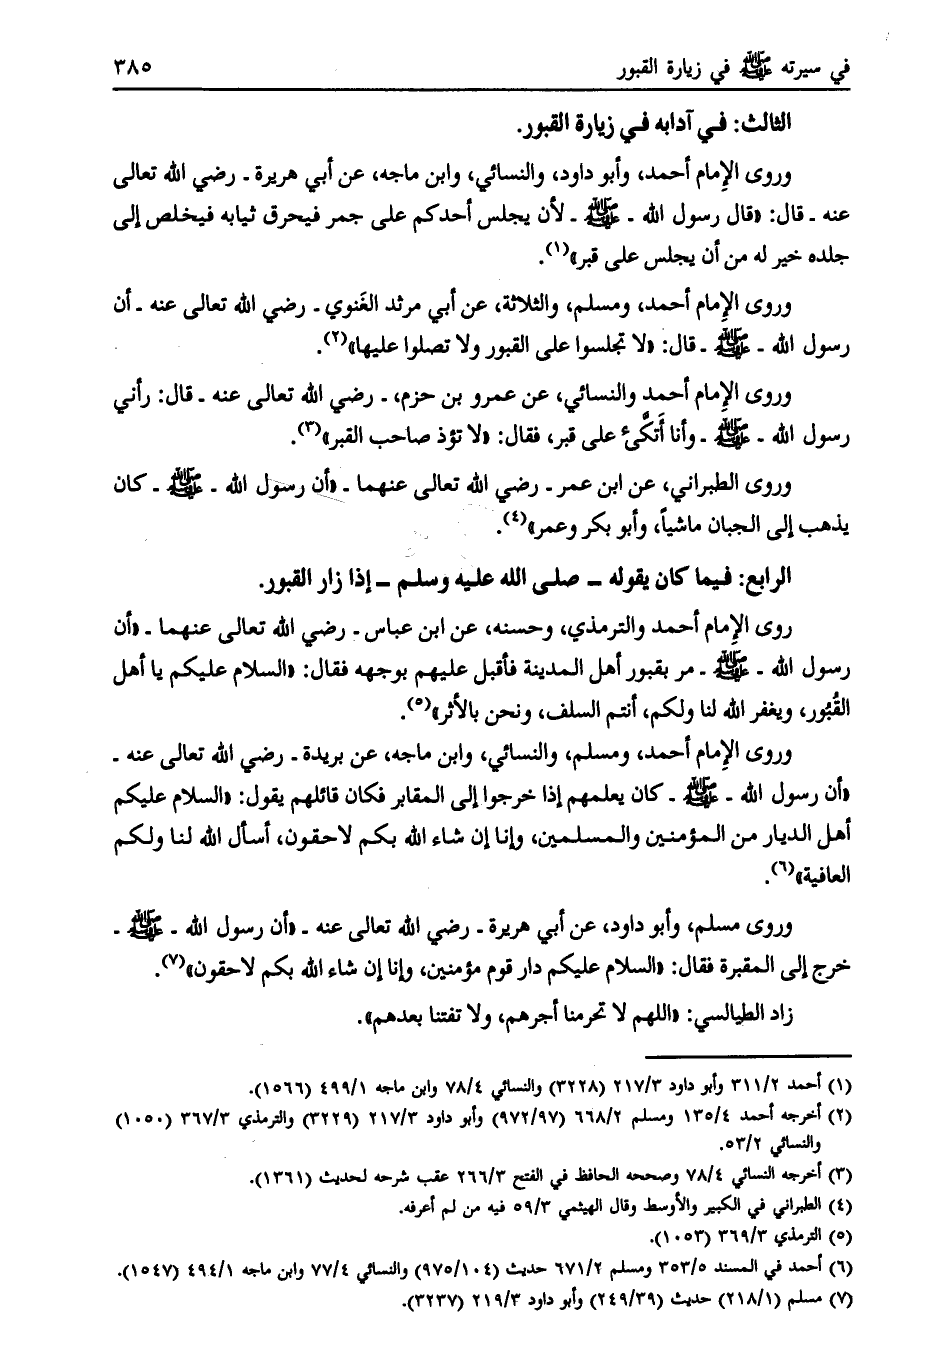 في سيرته ﷺ في زيارة القبور ٣٨٥
الثالث: في آدابه في زيارة القبور.
وروى الإمام أحمد، وأبو داود، والنسائي، وابن ماجه، عن أبي هريرة - رضي الله تعالى
عنه - قال: «قال رسول الله - ﷺ - لأن يجلس أحدكم على جمر فيحرق ثيابه فيخلص إلى
جلده خير له من أن يجلس على قبر»(١).
وروى الإمام أحمد، ومسلم، والثلاثة، عن أبي مرثد الغَنوي - رضي الله تعالى عنه - أن
رسول الله - ﷺ - قال: «لا تجلسوا على القبور ولا تصلوا عليها»(٢).
وروى الإمام أحمد والنسائي، عن عمرو بن حزم، - رضي الله تعالى عنه - قال: رأني
رسول الله - ﷺ - وأنا أَتكَّئ على قبر، فقال: «لا تؤذ صاحب القبر»(٣).
وروى الطبراني، عن ابن عمر - رضي الله تعالى عنهما - «أن رسول الله - ﷺ - كان
يذهب إلى الجبان ماشياً، وأبو بكر وعمر»(٤).
الرابع: فيما كان يقوله – صلى الله عليه وسلم – إذا زار القبور.
روى الإمام أحمد والترمذي، وحسنه، عن ابن عباس - رضي الله تعالى عنهما - «أن
رسول الله - ﷺ - مر بقبور أهل المدينة فأقبل عليهم بوجهه فقال: «السلام عليكم يا أهل
القُبُور، ويغفر الله لنا ولكم، أنتم السلف، ونحن بالأثر»(٥).
وروى الإمام أحمد، ومسلم، والنسائي، وابن ماجه، عن بريدة - رضي الله تعالى عنه -
«أن رسول الله - ﷺ - كان يعلمهم إذا خرجوا إلى المقابر فكان قائلهم يقول: «السلام عليكم
أهل الديار من المؤمنين والمسلمين، وإنا إن شاء الله بكم لاحقون، أسأل الله لنا ولكم
العافية»(٦).
وروى مسلم، وأبو داود، عن أبي هريرة - رضي الله تعالى عنه - «أن رسول الله - ﷺ -
خرج إلى المقبرة فقال: «السلام عليكم دار قوم مؤمنين، وإنا إن شاء الله بكم لاحقون»(٧).
زاد الطيالسي: «اللهم لا تحرمنا أجرهم، ولا تفتنا بعدهم».
(١) أحمد ٣١١/٢ وأبو داود ٢١٧/٣ (٣٢٢٨) والنسائي ٧٨/٤ وابن ماجه ٤٩٩/١ (١٥٦٦).
(٢) أخرجه أحمد ١٣٥/٤ ومسلم ٦٦٨/٢ (٩٧٢/٩٧) وأبو داود ٢١٧/٣ (٣٢٢٩) والترمذي ٣٦٧/٣ (١٠٥٠)
والنسائي ٥٣/٢.
(٣) أخرجه النسائي ٧٨/٤ وصححه الحافظ في الفتح ٢٦٦/٣ عقب شرحه لحديث (١٣٦١).
(٤) الطبراني في الكبير والأوسط وقال الهيثمي ٥٩/٣ فيه من لم أعرفه.
(٥) الترمذي ٣٦٩/٣ (١٠٥٣).
(٦) أحمد في المسند ٣٥٣/٥ ومسلم ٦٧١/٢ حديث (٩٧٥/١٠٤) والنسائي ٧٧/٤ وابن ماجه ٤٩٤/١ (١٥٤٧).
(٧) مسلم (٢١٨/١) حديث (٢٤٩/٣٩) وأبو داود ٢١٩/٣ (٣٢٣٧).